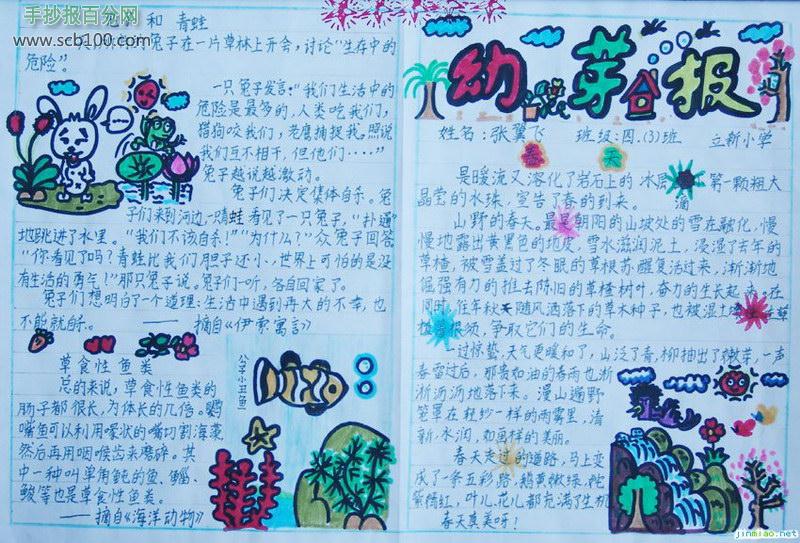 手抄报百分网
www.scb100.com
和 青蛙
兔子在一片草林上开会，讨论“生存中的
危险”。
一只兔子发言：“我们生活中的
危险是最多的，人类吃我们，
猎狗咬我们，老鹰捕捉我。照说
我们互不相干，但他们····”
兔子越说越激动。
兔子们决定集体自杀。兔
子们来到河边，一只蛙看见了一只兔子，“扑通”
地跳进了水里。“我们不该自杀！”“为什么？”众兔子回答
“你看见了吗？青蛙比我们胆子还小，世上可怕的是没
有生活的勇气！”那只兔子说。兔子们听，各自回家了。
兔子们想明白了一个道理：生活中遇到再大的不幸，也
不能就
——摘自《伊索寓言》
草食性鱼类
总的来说，草食性鱼类的
肠子都很长，为体长的几倍。鹦
嘴鱼可以利用喙状的嘴切割海藻，
然后再用咽喉齿来磨碎。其
中一种叫单角鲀的鱼、鲻、
鲅等也是草食性鱼类。
——摘自《海洋动物》
公子小丑鱼
幼芽报
姓名：张翼飞 班级：四.(3)班 立新小学
春 天
是暖流又溶化了岩石上的冰 第一颗粗大
晶莹的水珠，宣告了春的到来。 滴
山野的春天。最是朝阳的山坡处的雪在融化，慢
慢地露出黄黑色的地皮，雪水滋润泥土，浸湿了去年的
草楂，被雪盖过了冬眠的草根苏醒复活过来，渐渐地
倔强有力的推去陈旧的草楂树叶，奋力的生长起来。在
同时，往年秋天随风洒落下的草木种子，也被湿土
须，争取它们的生命。
一过惊蛰，天气更暖和了，山泛了青，柳抽出了嫩芽，一声
春雷过后，那贵如油的春雨也淅
淅沥沥地落下来。漫山遍野
笼罩在轻纱一样的雨雾里，清
新，水润，如画样的美丽。
春天走过的道路，马上变
成了一条五彩路，鹅黄嫩绿，
紫嫣红，叶儿、花儿都充满了生机
春天真美呀！
jinmiao.net